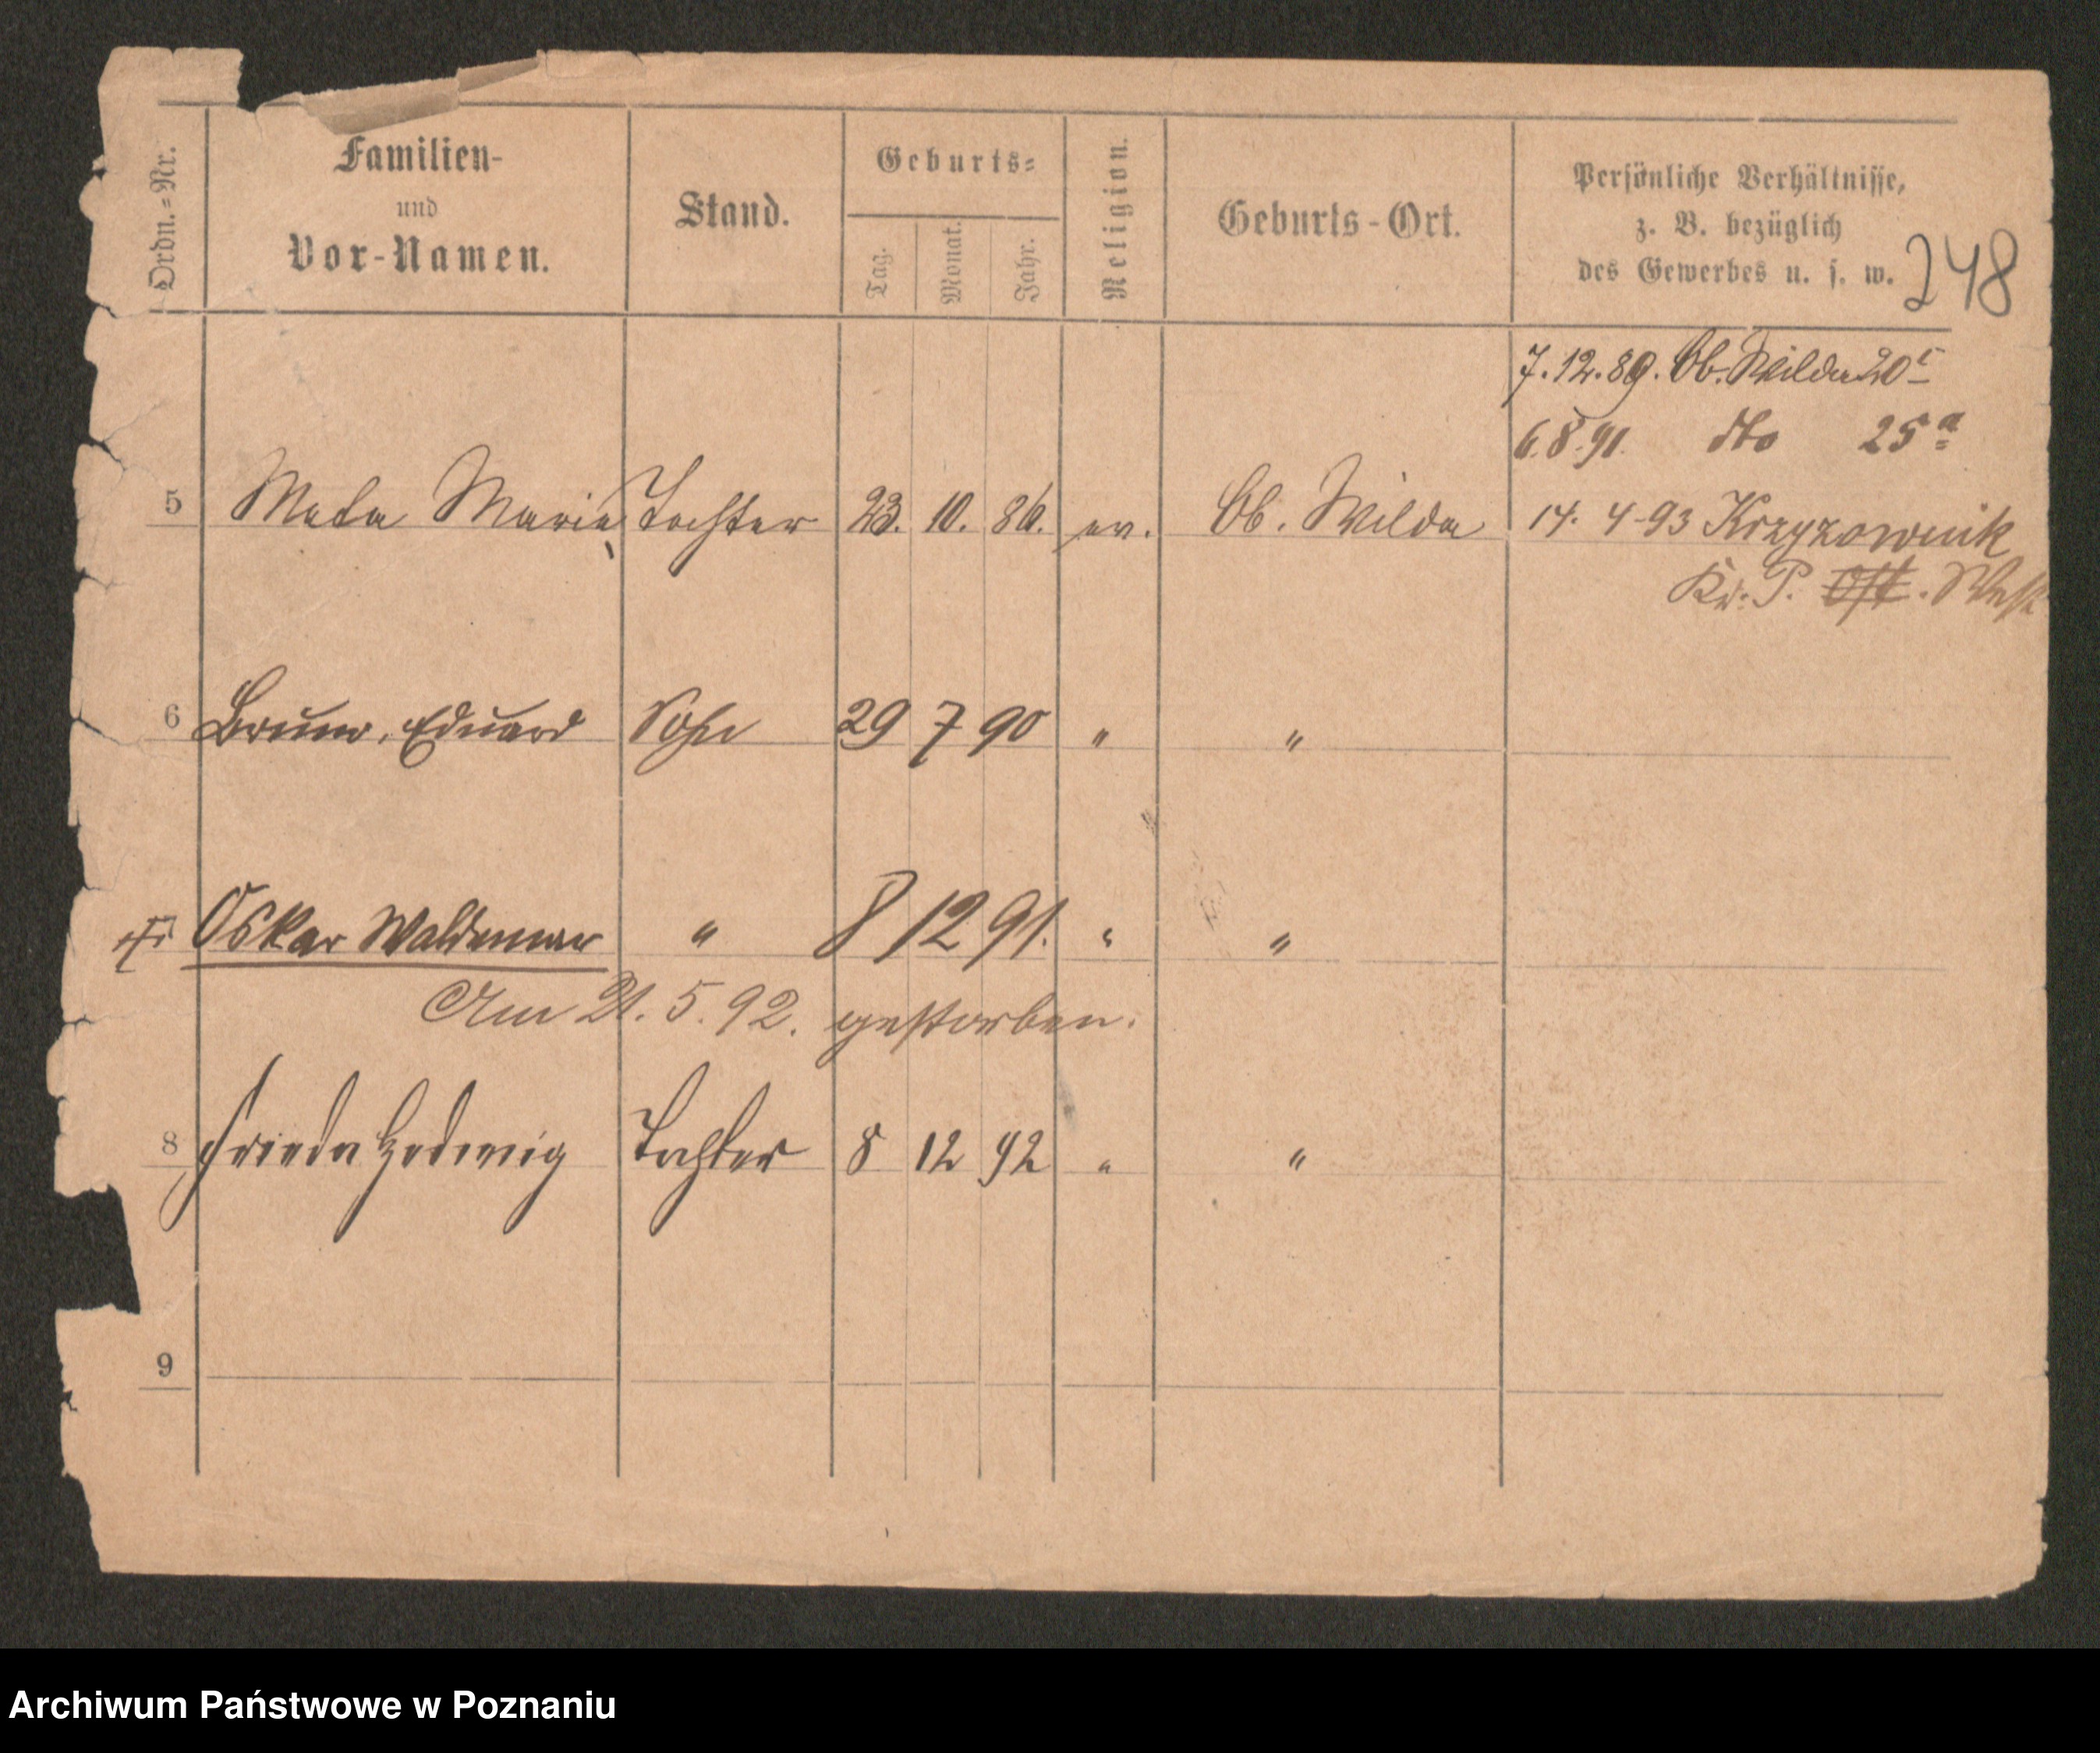 Ordn.-Nr. Familien- und Vor-Namen. Stand. Geburts- Tag. Monat. Jahr. Religion. Geburts-Ort. Persönliche Verhältnisse, z. B. bezüglich des Gewerbes u. s. w.
248
7.12.89. Ob. Wilda 20
6.8.91. dto 25a
5 Meta Marie Tochter 23. 10. 86. ev. Ob. Wilda 14. 4-93 Krzyzownik
Kr. P. Ost. West
6 Bruno, Eduard Sohn 29 7 90 " "
Oskar Waldemar " 8 12 91. " "
Am 21. 5. 92. gestorben.
8 Frieda Hedwig Tochter 8 12 92 " "
9
Archiwum Państwowe w Poznaniu